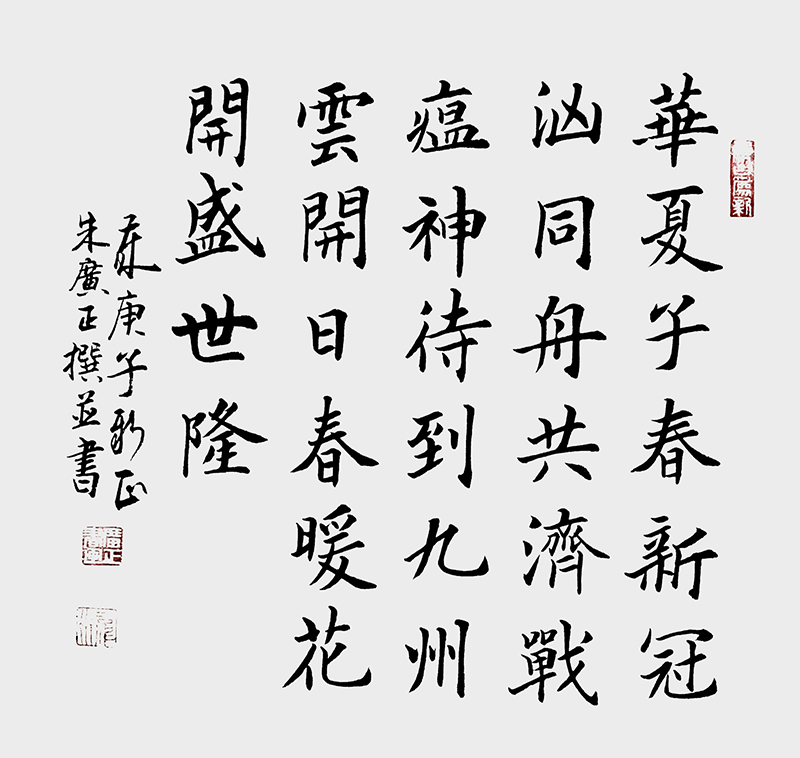 華夏子春新冠
汹同舟共濟戰
瘟神待到九州
雲開日春暖花
開盛世隆
歲庚子新正
朱廣正撰並書